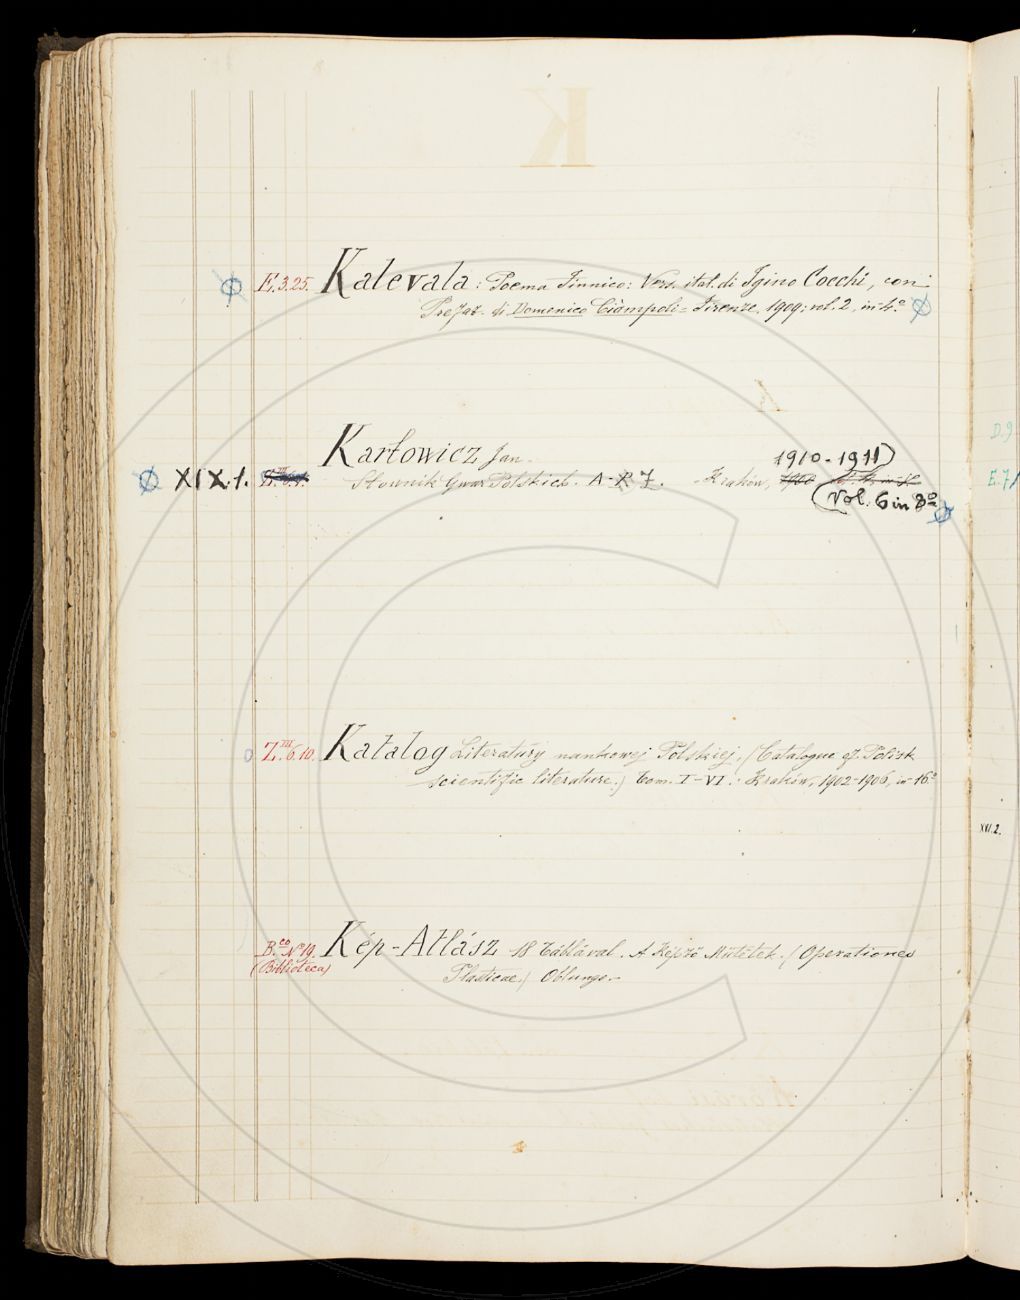 K
E.3.25. Kalevala: Poema Finnico: Vers. ital. di Igino Cocchi, con
Prefaz. di Domenico Ciàmpoli = Firenze, 1909; vol. 2, in-4.º
D.9
Karłowicz Jan.
1910-1911)
XIX.1. Słownik Gwar Polskich. A-Z. - Kraków, 1900
E.7
(Vol. 6 in 8º
Z.III.6.10. Katalog Literatury naukowej Polskiej. (Catalogue of Polish
scientific literature.) Tom. I-VI. - Kraków, 1902-1906, in-16.º
XVI.2.
B.co Nº 19. Kép-Atlász 18 Táblával. A Képző Mütétek. (Operationes
(Biblioteca) Plasticae.) Oblungo.-